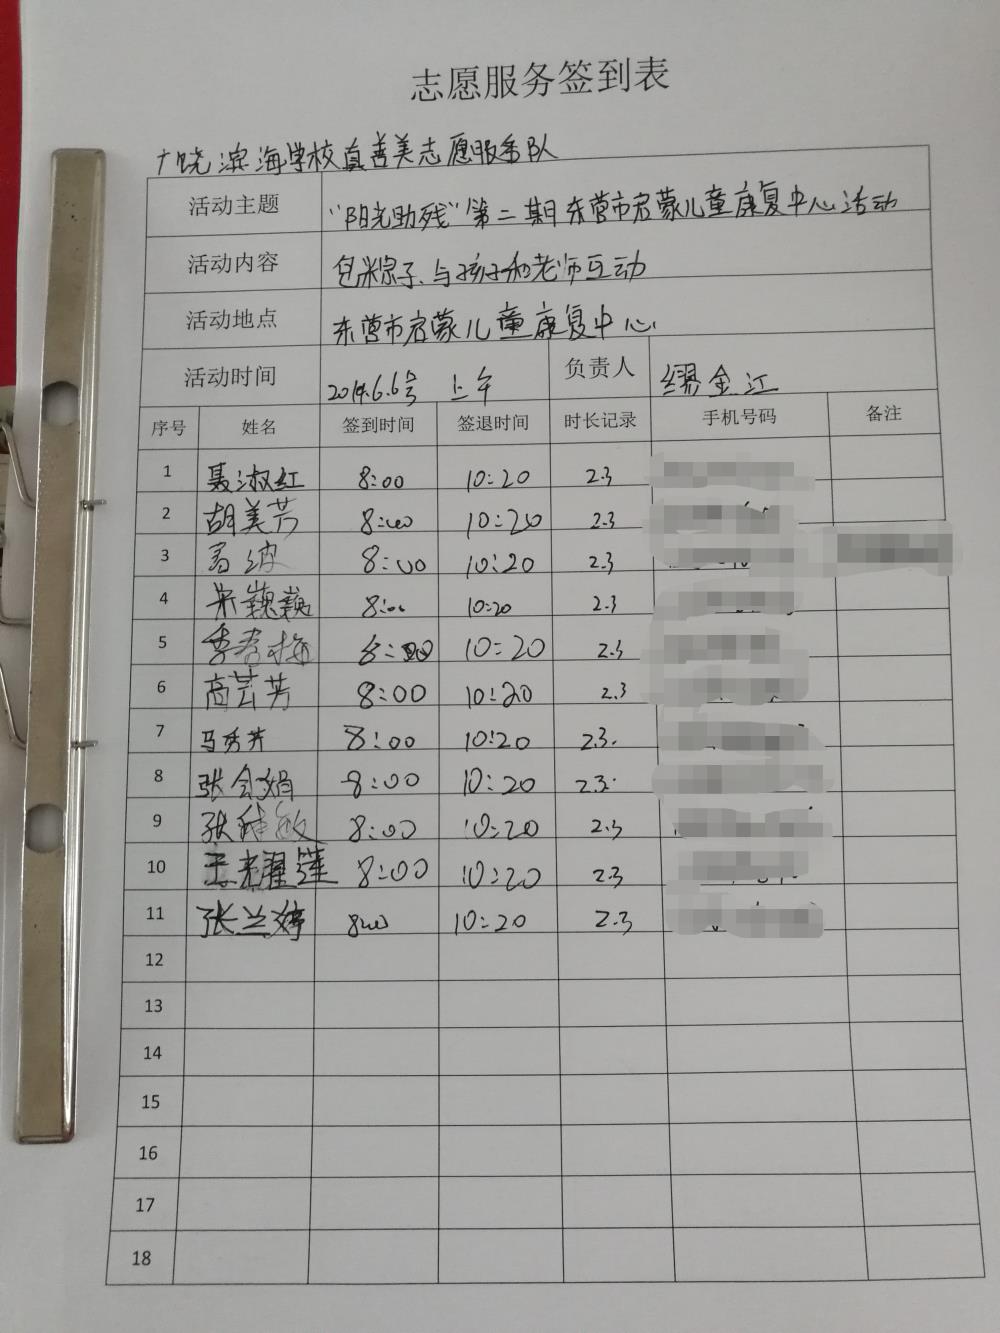 志愿服务签到表
广饶滨海学校真善美志愿服务队
活动主题 "阳光助残"第二期日东营市启蒙儿童康复中心活动
活动内容 包粽子、与孩子和老师互动
活动地点 东营市启蒙儿童康复中心
活动时间 6.6号 上午 负责人 缪金江
序号 姓名 签到时间 签退时间 时长记录 手机号码 备注
1 聂淑红 8:00 10:20 2.3
2 胡美芳 8:00 10:20 2.3
3 8:00 10:20 2.3
4 巍巍 8:00 10:20 2.3
5 李春梅 8:00 10:20 2.3
6 高芸芳 8:00 10:20 2.3
7 马秀芹 8:00 10:20 2.3.
8 张会娟 8:00 10:20 2.3.
9 张 敏 8:00 10:20 2.3
10 王耀莲 8:00 10:20 2.3
11 张兰婷 8:00 10:20 2.3
12
13
14
15
16
17
18